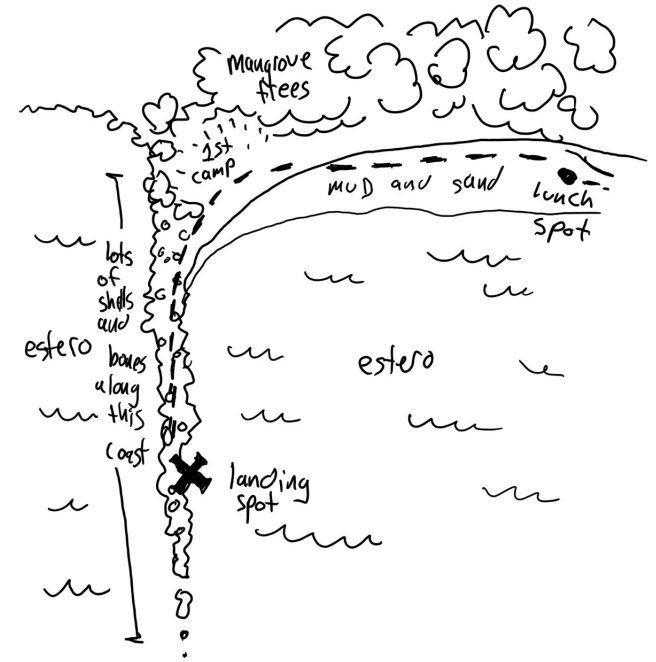 Mangrove
trees
1st
camp
MUD and sand
lunch
spot
lots
of
shells
and
bones
along
this
coast
estero
estero
landing
spot